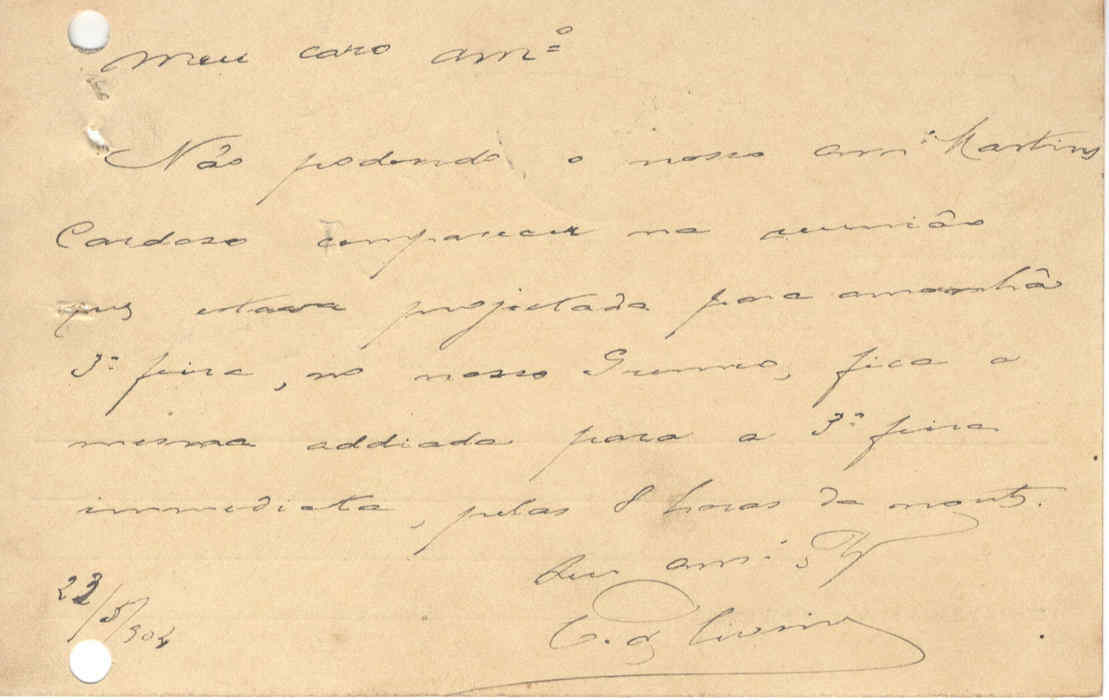 Meu caro amº
Não podendo o nosso amº Martins
Cardoso comparecer na reunião
que estava projectada para amanhã
3ª feira, no nosso Gremio, fica a
mesma addiada para a 3ª feira
immediata, pelas 8 horas da noute.
Seu amº
23/5/904